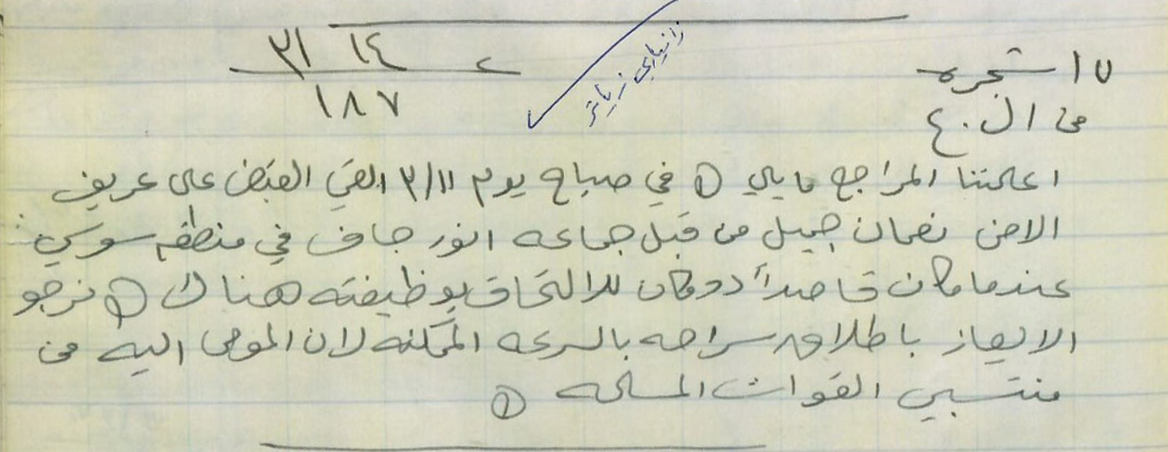 ١٤ ٣١
١٨٧
زانیاری زیاتر
الى / شجره
من ال ٤٠
اعلمتنا المراجع مايلي (٠) في صباح يوم ٣/١١ القي القبض على عريف
الامن نعمان جميل من قبل جماعه انور جاف في منطقه سوسي
عندما كان قاصداً دوكان للالتحاق بوظيفته هناك (٠) نرجو
الايعاز باطلاق سراحه بالسرعه الممكنه لان المومى اليه من
منتسبي القوات المسلحه (٠)